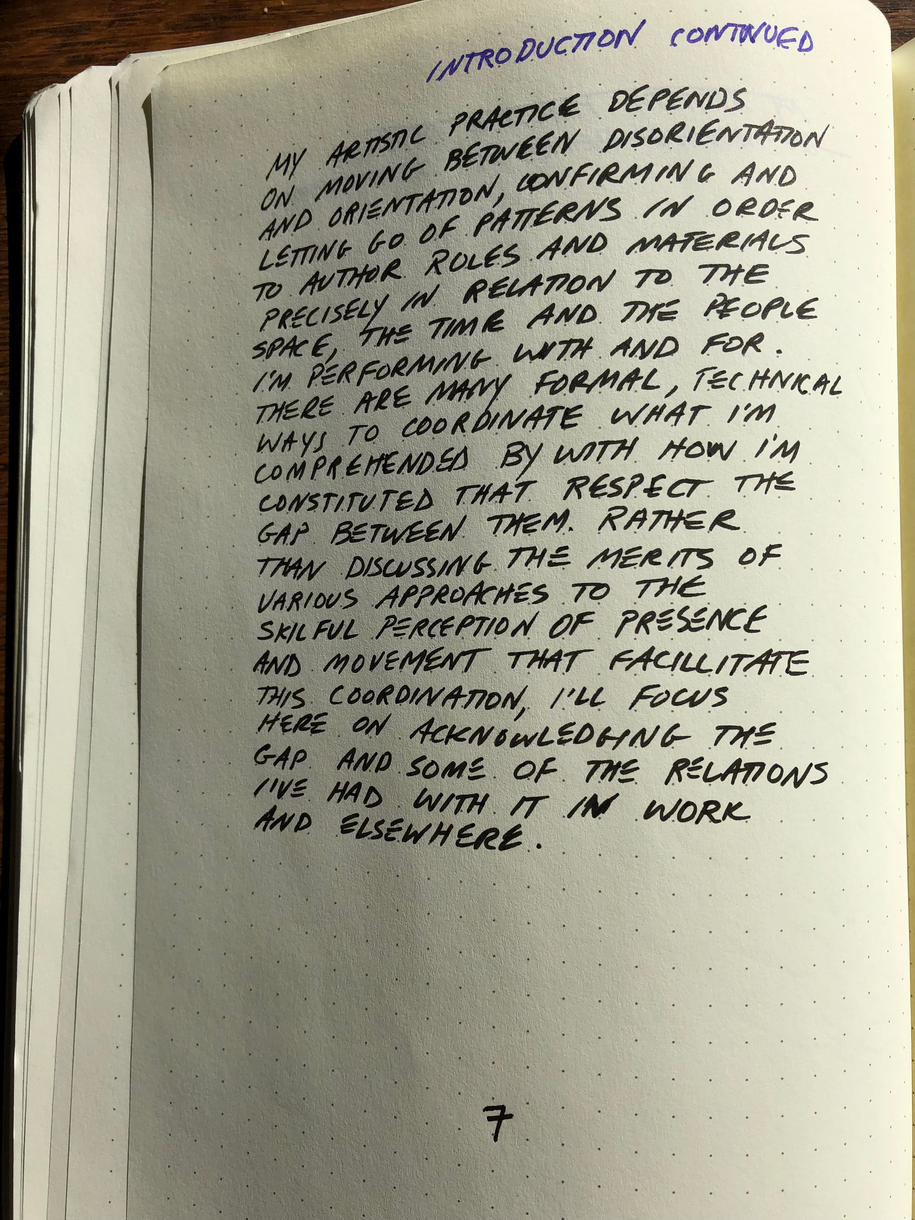 INTRODUCTION CONTINUED
MY ARTISTIC PRACTICE DEPENDS
ON MOVING BETWEEN DISORIENTATION
AND ORIENTATION, CONFIRMING AND
LETTING GO OF PATTERNS IN ORDER
TO AUTHOR ROLES AND MATERIALS
PRECISELY IN RELATION TO THE
SPACE, THE TIME AND THE PEOPLE
I'M PERFORMING WITH AND FOR.
THERE ARE MANY FORMAL, TECHNICAL
WAYS TO COORDINATE WHAT I'M
COMPREHENDED BY WITH HOW I'M
CONSTITUTED THAT RESPECT THE
GAP BETWEEN THEM. RATHER
THAN DISCUSSING THE MERITS OF
VARIOUS APPROACHES TO THE
SKILFUL PERCEPTION OF PRESENCE
AND MOVEMENT THAT FACILLITATE
THIS COORDINATION, I'LL FOCUS
HERE ON ACKNOWLEDGING THE
GAP AND SOME OF THE RELATIONS
I'VE HAD WITH IT IN WORK
AND ELSEWHERE.
7